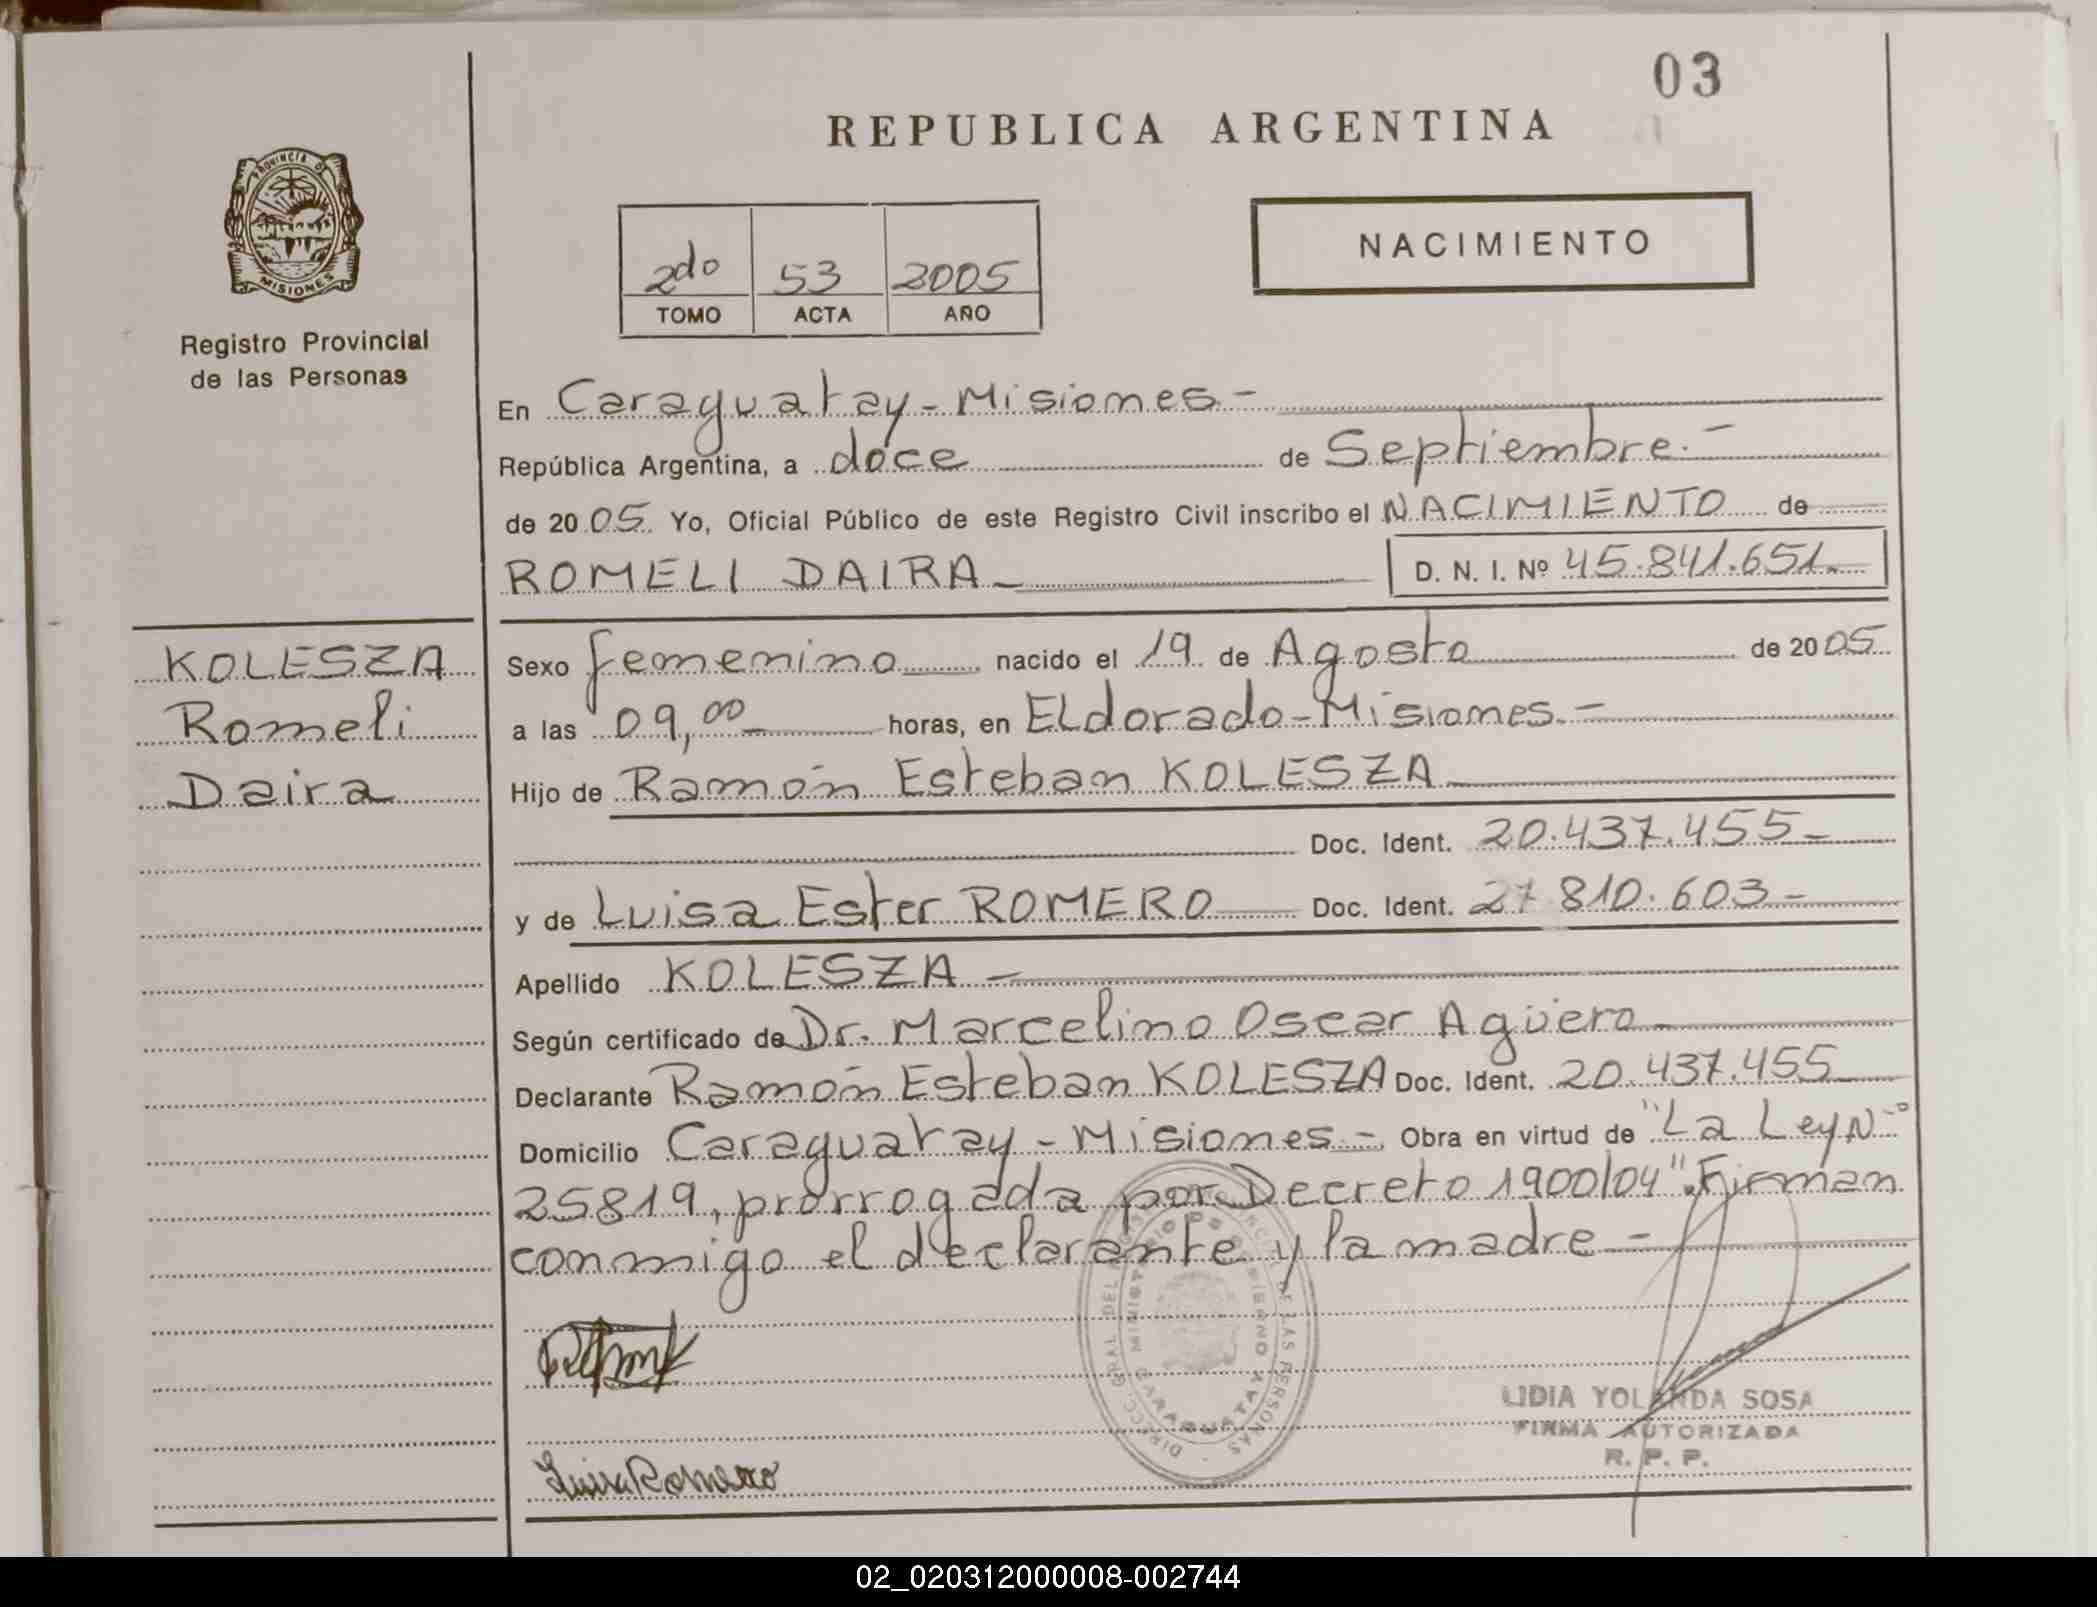 03
REPUBLICA ARGENTINA
PROVINCIA DE
MISIONES
Registro Provincial
de las Personas
2do 53 2005
TOMO ACTA AÑO
NACIMIENTO
En Caraguatay - Misiones -
República Argentina, a doce de Septiembre. -
de 2005 Yo, Oficial Público de este Registro Civil inscribo el NACIMIENTO de
ROMELI DAIRA - D. N. I. Nº 45.841.651.-
KOLESZA
Romeli
Daira
Sexo femenino nacido el 19 de Agosto de 2005
a las 09,00 horas, en ELdorado - Misiones. -
Hijo de Ramón Esteban KOLESZA
Doc. Ident. 20.437.455 -
y de Luisa Ester ROMERO Doc. Ident. 27 810.603 -
Apellido KOLESZA -
Según certificado de Dr. Marcelino Oscar Agüero -
Declarante Ramón Esteban KOLESZA Doc. Ident. 20.437.455
Domicilio Caraguatay - Misiones - Obra en virtud de "La Ley Nº
25819, prorrogada por Decreto 1900/04". Firman
conmigo el declarante y la madre -
Luisa Romero
LIDIA YOLANDA SOSA
FIRMA AUTORIZADA
R. P. P.
02_020312000008-002744